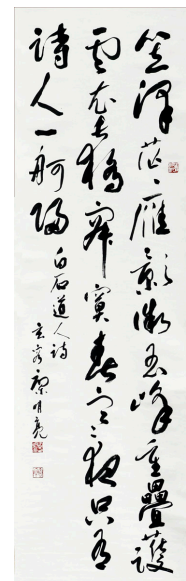 笠澤茫〻雁影微玉峰重疊護
雲衣長橋寂寞春寒夜只有
詩人一舸歸
白石道人詩